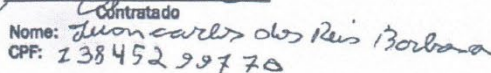 Contratado
Nome: Juan carlos dos Reis Barbosa
CPF: 138452 99770